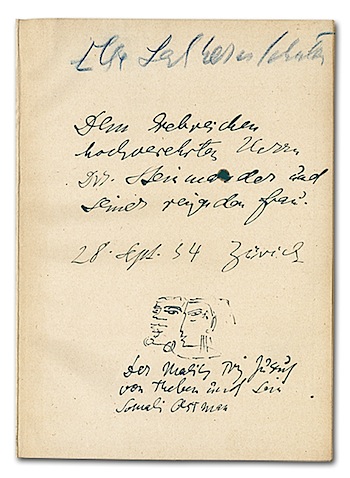 Else Lasker-Schüler
Dem liebreichen
hochverehrten Herrn
Dr. und
seiner reizenden Frau.
28. Sept. 34 Zürich
Der Malik Prinz Jussuf
von Theben und sein
Somali Ossman